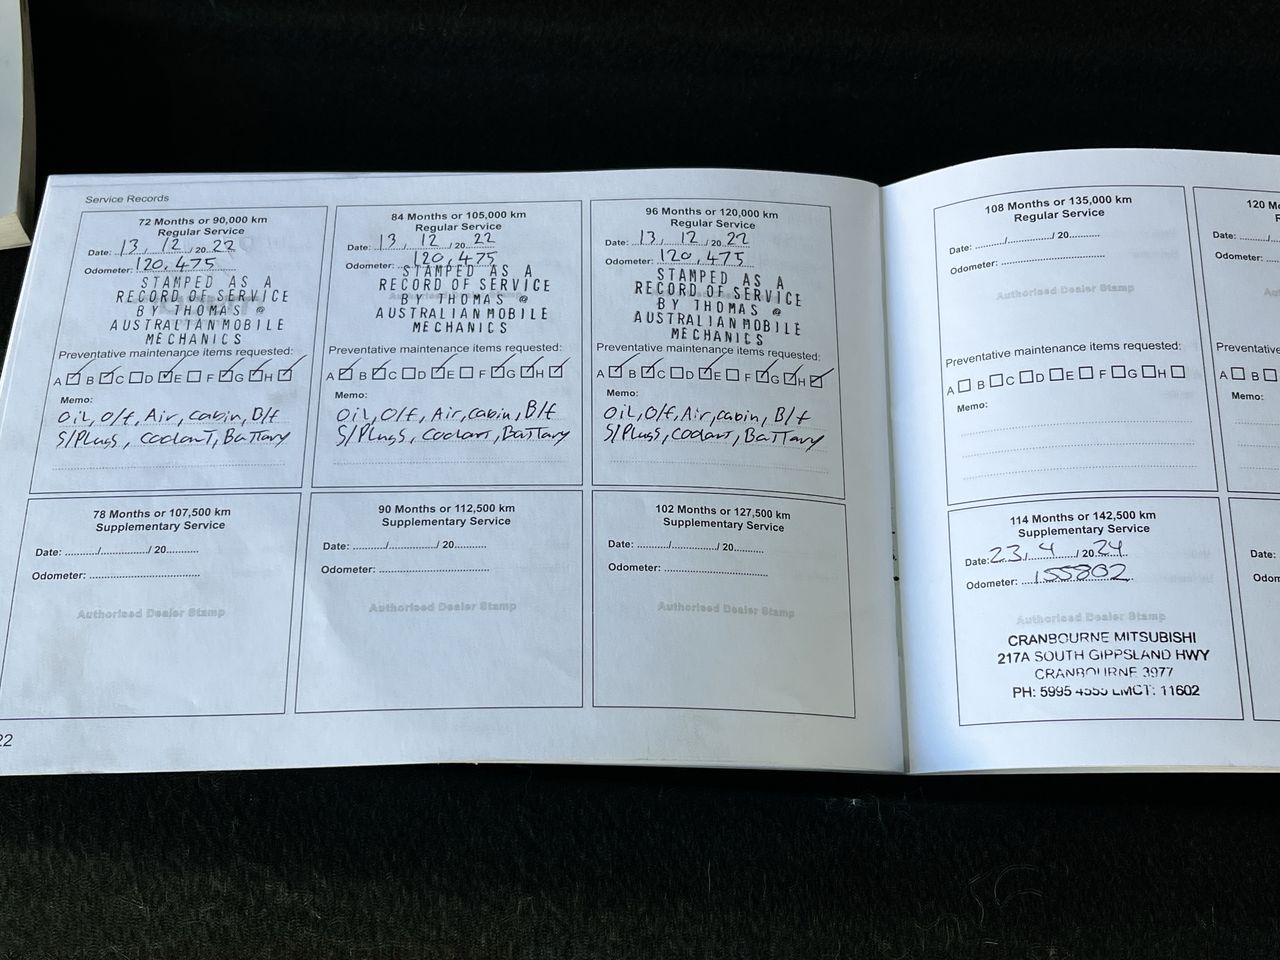 Service Records
72 Months or 90,000 km
Regular Service
Date: 13, 12 / 20 22
Odometer: 120,475
STAMPED AS A
RECORD OF SERVICE
BY THOMAS @
AUSTRALIAN MOBILE
MECHANICS
Preventative maintenance items requested:
A B C D E F G H
Memo:
Oil, O/f, Air, cabin, B/f
S/Plugs, coolant, Battary
84 Months or 105,000 km
Regular Service
Date: 13, 12 / 20 22
Odometer: 120,475
STAMPED AS A
RECORD OF SERVICE
BY THOMAS @
AUSTRALIAN MOBILE
MECHANICS
Preventative maintenance items requested:
A B C D E F G H
Memo:
Oil, O/f, Air, cabin, B/f
S/Plugs, coolant, Battary
96 Months or 120,000 km
Regular Service
Date: 13, 12 / 20 22
Odometer: 120,475
STAMPED AS A
RECORD OF SERVICE
BY THOMAS @
AUSTRALIAN MOBILE
MECHANICS
Preventative maintenance items requested:
A B C D E F G H
Memo:
Oil, O/f, Air, cabin, B/f
S/Plugs, coolant, Battary
78 Months or 107,500 km
Supplementary Service
Date: ........./............../ 20...........
Odometer: .......................................
Authorised Dealer Stamp
90 Months or 112,500 km
Supplementary Service
Date: ........./............../ 20...........
Odometer: .......................................
Authorised Dealer Stamp
102 Months or 127,500 km
Supplementary Service
Date: ........./............../ 20...........
Odometer: .......................................
Authorised Dealer Stamp
22
108 Months or 135,000 km
Regular Service
Date: ........./............../ 20...........
Odometer: .......................................
Authorised Dealer Stamp
Preventative maintenance items requested:
A B C D E F G H
Memo:
114 Months or 142,500 km
Supplementary Service
Date: 23, 4 / 20 24
Odometer: 155802
Authorised Dealer Stamp
CRANBOURNE MITSUBISHI
217A SOUTH GIPPSLAND HWY
CRANBOURNE 3977
PH: 5995 LMCT: 11602
120
Date:
Odometer:
A B
Memo:
Date: